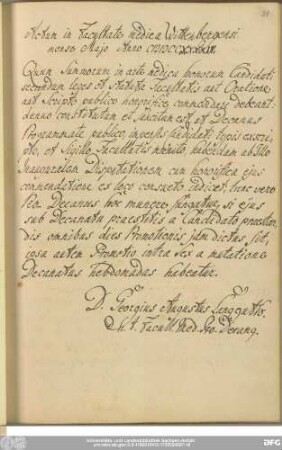 Actum in Facultate medica Wittenbergensi
mense Majo Anno
Quum Summorum in arte medica honorum Candidati
secundum leges et statuta Facultatis aut Oratione
aut Scripto publico honorifice commendari debeant
denuo constitutum et sancitum est, ut Decanus
Programmate publico, impensis Candidati typis exscri-
pto, et Sigillo Facultatis munito, habendam ab Illo
Inauguralem Disputationem cum honorifica ejus
commendatione eo loco consueto indicet, tunc vero
Decanus hoc munere fungatur, si ejus
sub Decanatu praestitis a Candidato praestan-
dis omnibus dies Promotionis jam dictus sit,
ipsa autem Promotio intra sex a mutatione
Decanatus hebdomadas habeatur.
D. Georgius Augustus Langguth.
h. t. Facult. Med. Pro-Decang.